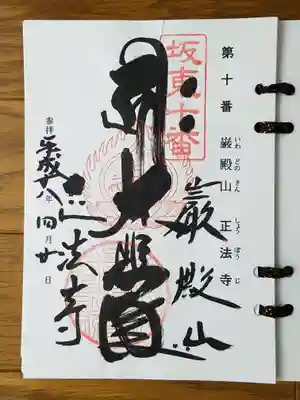 第十番 巌殿山 正法寺
いわ どの さん しょう ぼう じ
坂東十番
巌殿山
大悲殿
正法寺
参拝 平成十八年四月廿日